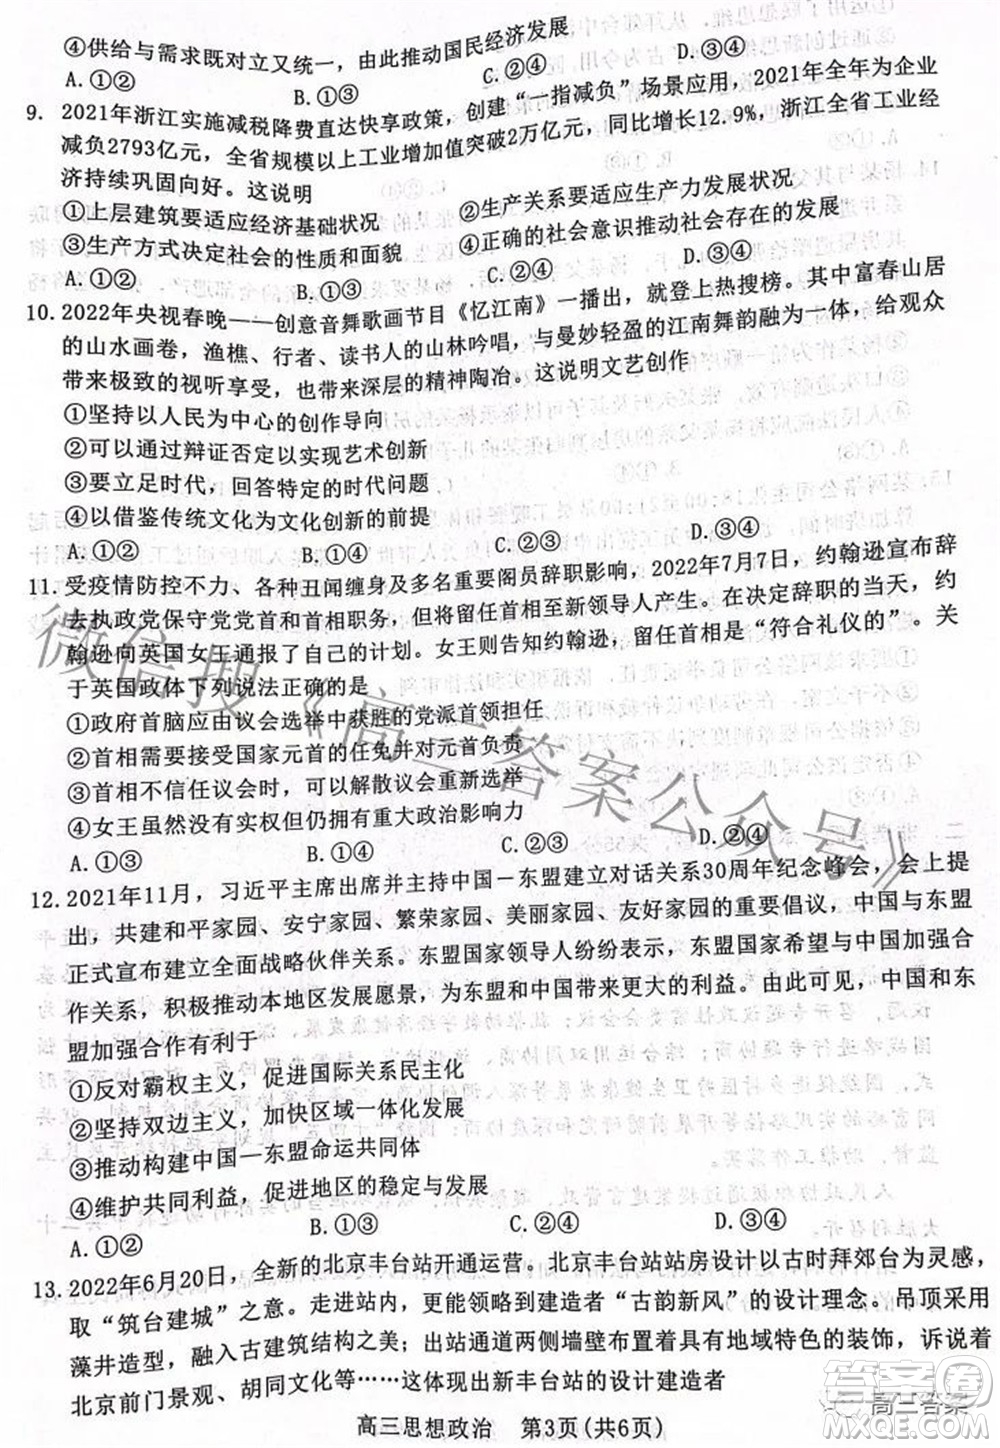 ④供给与需求既对立又统一，由此推动国民经济发展
A.①② B.①③ C.②④ D.③④
9. 2021年浙江实施减税降费直达快享政策，创建“一指减负”场景应用，2021年全年为企业
减负2793亿元，全省规模以上工业增加值突破2万亿元，同比增长12.9%，浙江全省工业经
济持续巩固向好。这说明
①上层建筑要适应经济基础状况 ②生产关系要适应生产力发展状况
③生产方式决定社会的性质和面貌 ④正确的社会意识推动社会存在的发展
A.①② B.①③ C.②④ D.③④
10. 2022年央视春晚——创意音舞歌画节目《忆江南》一播出，就登上热搜榜。其中富春山居
的山水画卷，渔樵、行者、读书人的山林吟唱，与曼妙轻盈的江南舞韵融为一体，给观众
带来极致的视听享受，也带来深层的精神陶冶。这说明文艺创作
①坚持以人民为中心的创作导向
②可以通过辩证否定以实现艺术创新
③要立足时代，回答特定的时代问题
④以借鉴传统文化为文化创新的前提
A.①② B.①③ C.②④ D.③④
11. 受疫情防控不力、各种丑闻缠身及多名重要阁员辞职影响，2022年7月7日，约翰逊宣布辞
去执政党保守党党首和首相职务，但将留任首相至新领导人产生。在决定辞职的当天，约
翰逊向英国女王通报了自己的计划。女王则告知约翰逊，留任首相是“符合礼仪的”。关
于英国政体下列说法正确的是
①政府首脑应由议会选举中获胜的党派首领担任
②首相需要接受国家元首的任免并对元首负责
③首相不信任议会时，可以解散议会重新选举
④女王虽然无实权但仍拥有重大政治影响力
A.①② B.①③ C.②③ D.②④
12. 2021年11月，习近平主席出席并主持中国－东盟建立对话关系30周年纪念峰会，会上提
出，共建和平家园、安宁家园、繁荣家园、美丽家园、友好家园的重要倡议，中国与东盟
正式宣布建立全面战略伙伴关系。东盟国家领导人纷纷表示，东盟国家希望与中国加强合
作关系，积极推动本地区发展愿景，为东盟和中国带来更大的利益。由此可见，中国和东
盟加强合作有利于
①反对霸权主义，促进国际关系民主化
②坚持双边主义，加快区域一体化发展
③推动构建中国—东盟命运共同体
④维护共同利益，促进地区的稳定与发展
A.①② B.①③ C.②④ D.③④
13. 2022年6月20日，全新的北京丰台站开通运营。北京丰台站站房设计以古时拜郊台为灵感，
取“筑台建城”之意。走进站内，更能领略到建造者“古韵新风”的设计理念。吊顶采用
藻井造型，融入古建筑结构之美；出站通道两侧墙壁布置着具有地域特色的装饰，诉说着
北京前门景观、胡同文化等……这体现出新丰台站的设计建造者
高三思想政治 第3页(共6页)
微信搜《高三答案公众号》
答案圈
高三答案
MXQE.COM